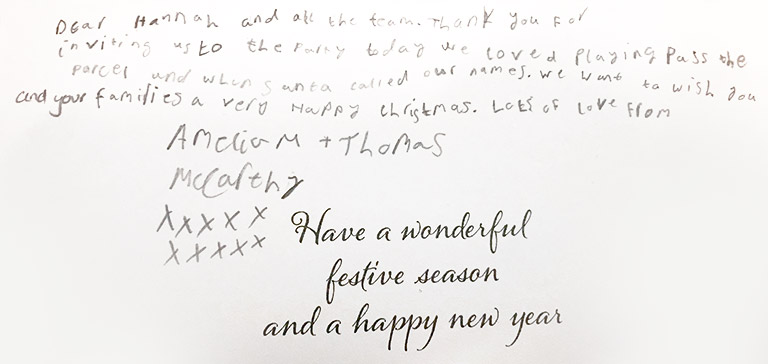 Dear Hannah and all the team. Thank you for
inviting us to the Party today we loved playing Pass the
Parcel and when santa called our names. We want to wish you
and your families a very Happy christmas. Lots of love from
Ameliam + Thomas
McCarthy
xxxxx
xxxxx
Have a wonderful
festive season
and a happy new year